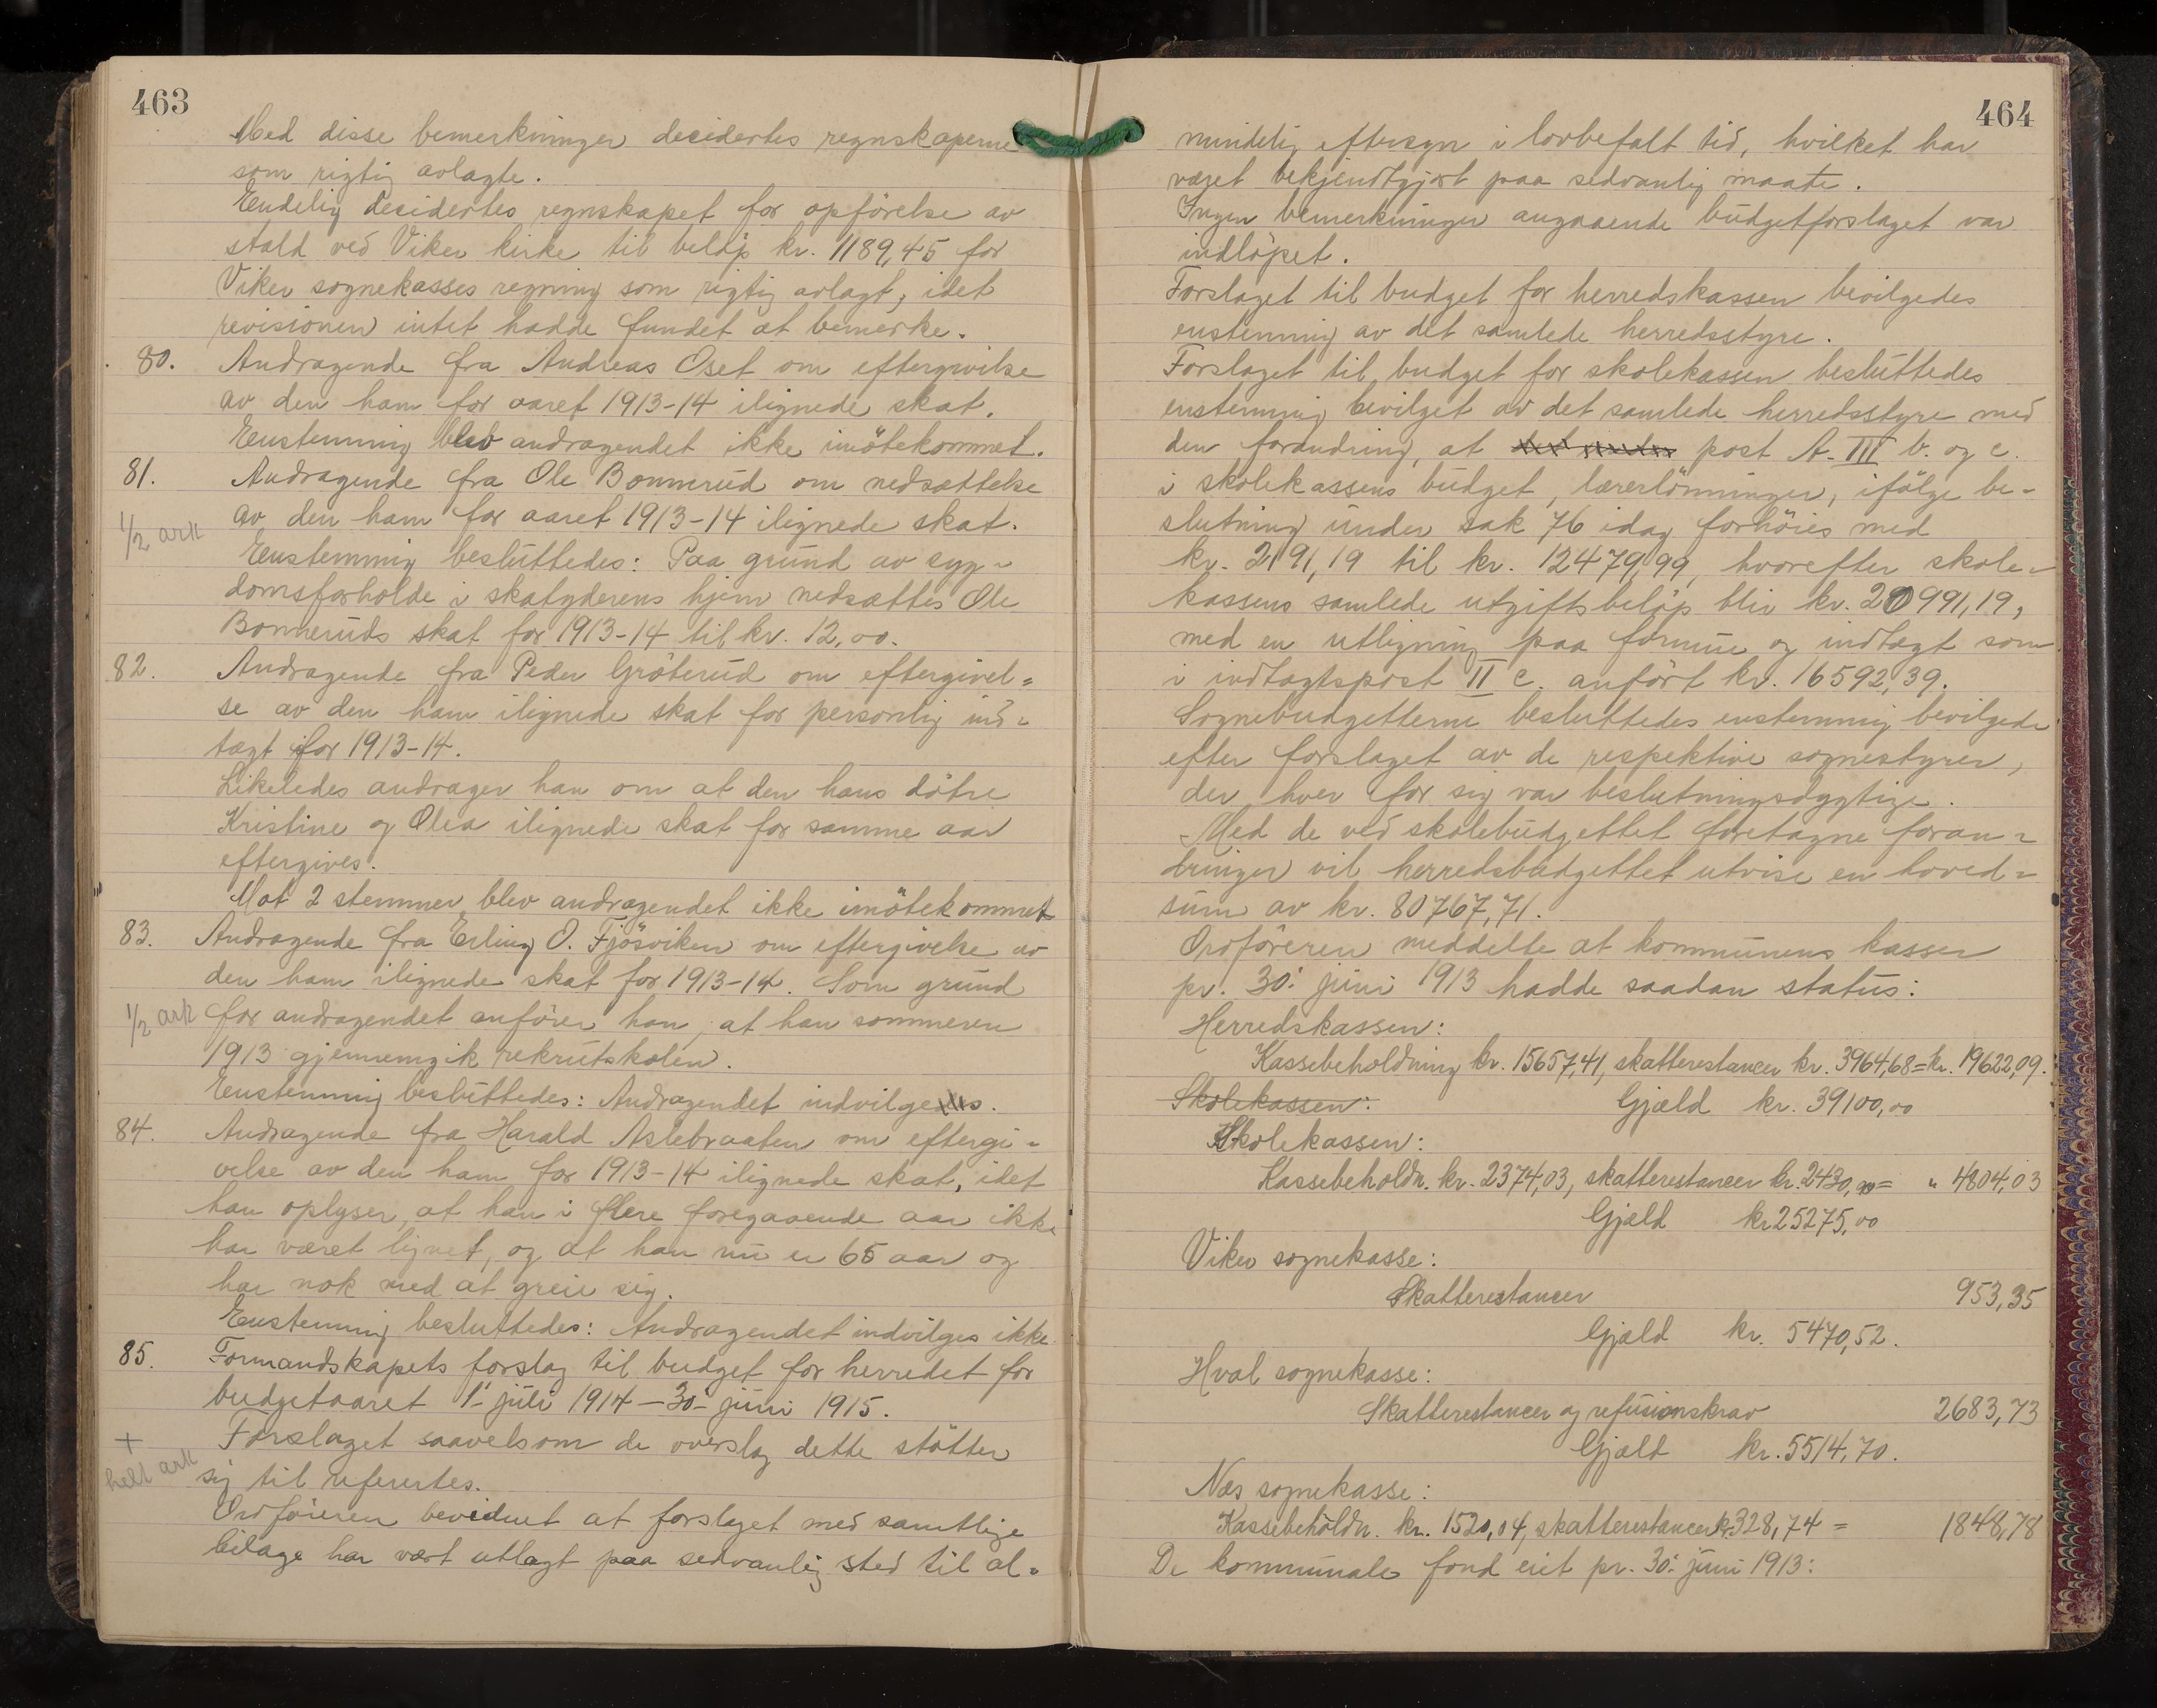 463
Med disse bemerkninger decidertes regnskaperne
som rigtig avlagte.
Endelig decidertes regnskapet for opförelse av
stald ved Viker kirke til beløp kr. 1189,45 for
Viker sognekasses regning som rigtig avlagt, idet
revisionen intet hadde fundet at bemerke.
80. Andragende fra Andreas Oset om eftergivelse
av den ham for aaret 1913-14 ilignede skat.
Enstemmig blev andragendet ikke imötekommet.
81. Andragende fra Ole Bonnerud om nedsættelse
av den ham for aaret 1913-14 ilignede skat.
1/2 ark
Enstemmig besluttedes: Paa grund av syg-
domsforholde i skatyderens hjem nedsættes Ole
Bonneruds skat for 1913-14 til kr. 12,00.
82. Andragende fra Peder Gröterud om eftergivel=
se av den ham ilignede skat for personlig ind-
tægt for 1913-14.
Likeledes andrager han om at den hans dötre
Kristine og Olea ilignede skat for samme aar
eftergives.
Mot 2 stemmer blev andragendet ikke imötekommet
83. Andragende fra Erling O. Fjösviken om eftergivelse av
den ham ilignede skat for 1913-14. Som grund
1/2 ark for andragendet anförer han, at han sommeren
1913 gjennemgik rekrutskolen.
Enstemmig besluttedes: Andragendet indvilges.
84. Andragende fra Harald Aslebraaten om eftergi-
velse av den ham for 1913-14 ilignede skat, idet
han oplyser, at han i flere foregaaende aar ikke
har været lignet, og at han nu er 65 aar og
har nok med at greie sig.
Enstemmig besluttedes: Andragendet indvilges ikke
85. Formandskapets forslag til budget for herredet for
budgetaaret 1' juli 1914 - 30- juni 1915.
+ Forslaget saavelsom de overslag dette stötter
helt ark sig til refertes.
Ordföreren bevidnet at forslaget med samtlige
bilage har vært utlagt paa sedvanlig sted til al-
464
mindelig eftersyn i lovbefalt tid, hvilket har
været bekjendtgjort paa sedvanlig maate.
Ingen bemerkninger angaaende budgetforslaget var
indlöpet.
Forslaget til budget for herredskassen bevilgedes
enstemmig av det samlede herredsstyre.
Forslaget til budget for skolekassen besluttedes
enstemmig bevilget av det samlede herredsstyre med
den forandring, at post A. III b. og c.
i skolekassens budget, lærerlönninger, ifölge be-
slutning under sak 76 idag forhöies med
kr. 2191,19 til kr. 12479,99, hvorefter skole-
kassens samlede utgiftsbeløp blir kr. 20991,19,
med en utligning paa formue og indtægt som
i indtægtspost II c. anfört kr. 16592,39.
Sognebudgetterne besluttedes enstemmig bevilgede
efter forslaget av de respektive sognestyrer,
der hver for sig var beslutningsdygtige.
Med de ved skolebudgettet foretagne foran-
dringer vil herredsbudgettet utvise en hoved-
sum av kr. 80767,71.
Ordföreren meddelte at kommunens kasser
pr. 30: juni 1913 hadde saadan status:
Herredskassen:
Kassebeholdning kr. 15657,41, skatterestancer kr. 3964,68 = kr. 19622,09.
Skolekassen: Gjæld kr. 39100,00
Skolekassen:
Kassebeholdn. kr. 2374,03, skatterestancer kr. 2430,00 = " 4804,03
Gjæld kr 25275,00
Viker sognekasse:
Skatterestancer 953,35
Gjæld kr. 5470,52.
Hval sognekasse:
Skatterestancer og refusionskrav 2683,73
Gjæld kr. 5514,70.
Næs sognekasse:
Kassebeholdn. kr. 1520,04, skatterestancer kr. 328,74 = 1848,78
De kommunale fond eiet pr. 30: juni 1913: